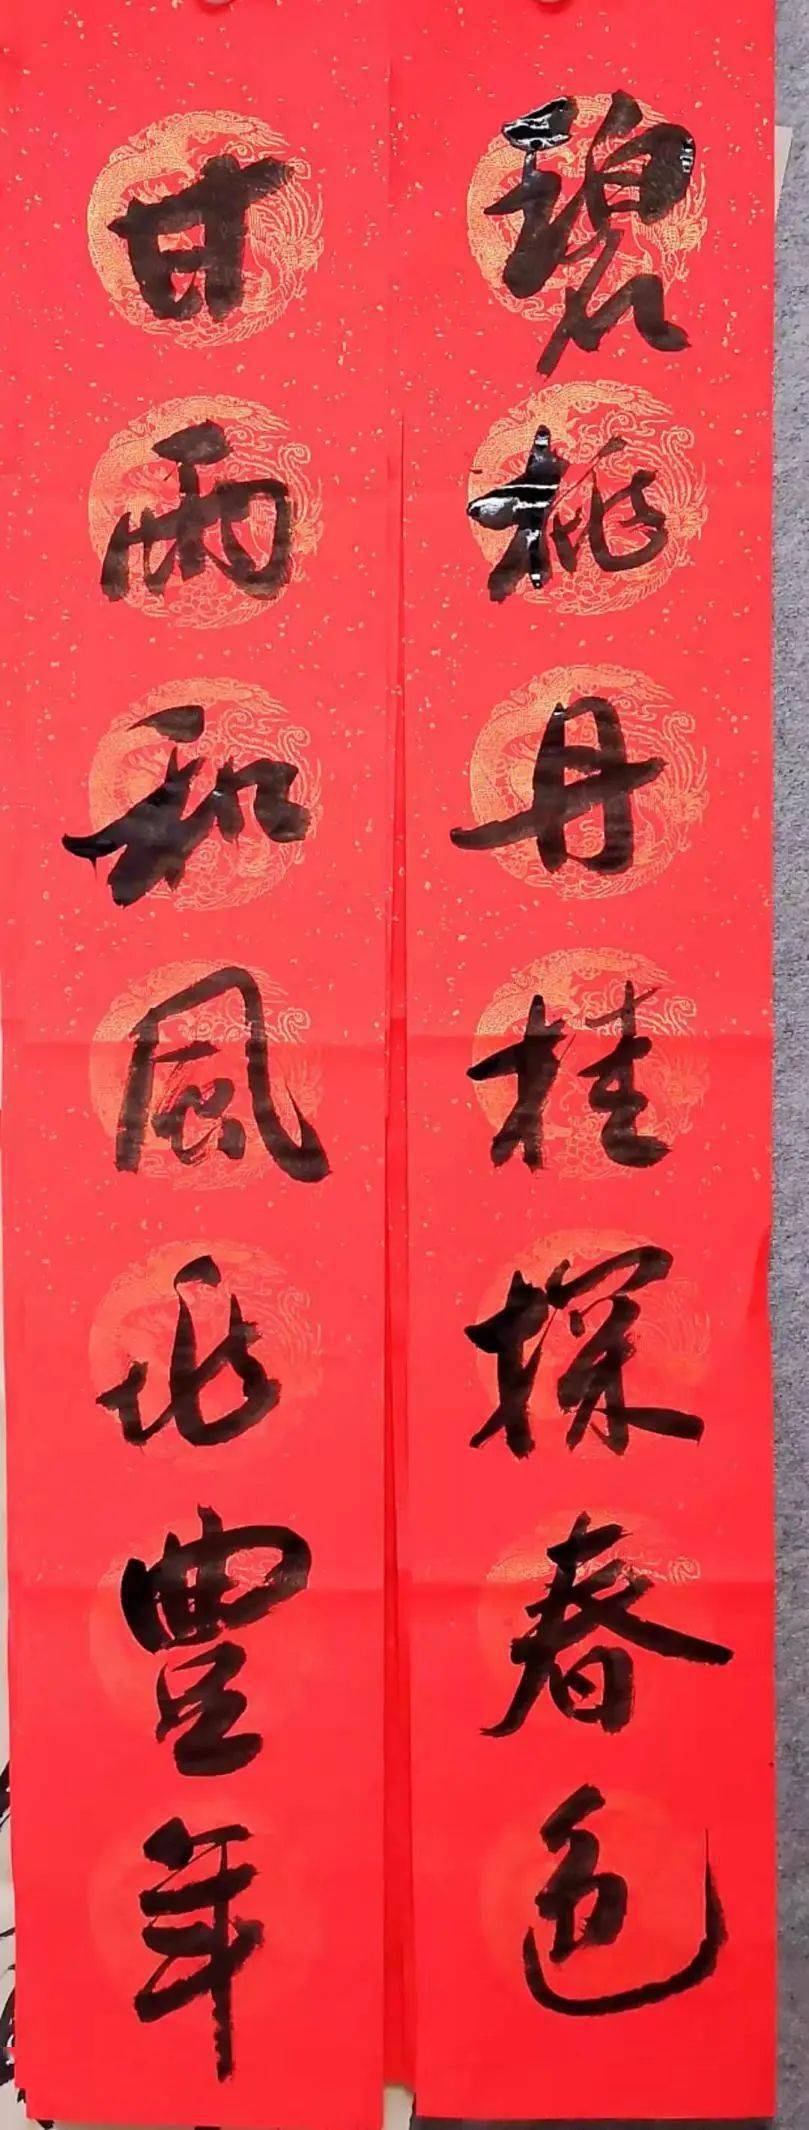 碧桃丹桂探春色
甘雨和風兆豐年